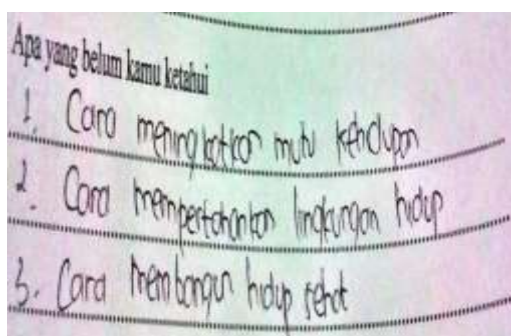 Apa yang belum kamu ketahui
1. Cara meningkatkan mutu kehidupan
2. Cara mempertahankan lingkungan hidup
3. Cara membangun hidup sehat